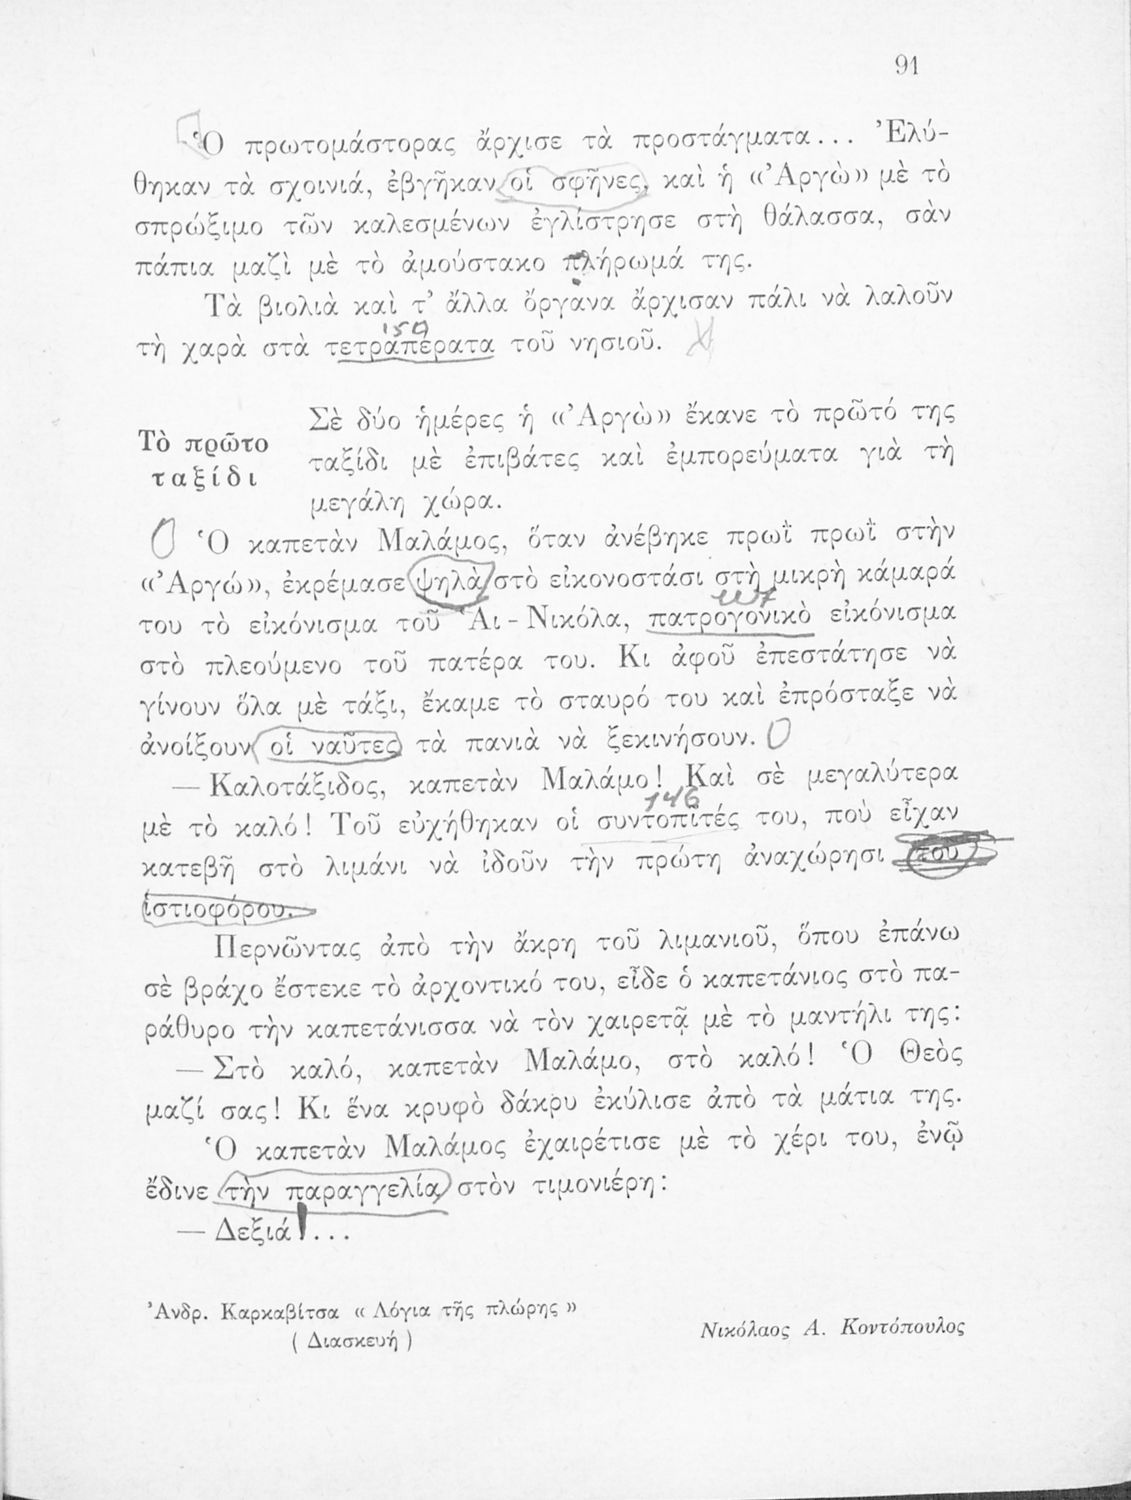 91
Ὁ πρωτομάστορας ἄρχισε τὰ προστάγματα... Ἐλύ-
θηκαν τὰ σχοινιά, ἐβγῆκαν οἱ σφῆνες, καὶ ἡ «Ἀργὼ» μὲ τὸ
σπρώξιμο τῶν καλεσμένων ἐγλίστρησε στὴ θάλασσα, σὰν
πάπια μαζὶ μὲ τὸ ἀμούστακο πλήρωμά της.
Τὰ βιολιὰ καὶ τ᾽ ἄλλα ὄργανα ἄρχισαν πάλι νὰ λαλοῦν
150
τὴ χαρὰ στὰ τετραπέρατα τοῦ νησιοῦ.
Τὸ πρῶτο
ταξίδι
Σὲ δύο ἡμέρες ἡ «Ἀργὼ» ἔκανε τὸ πρῶτό της
ταξίδι μὲ ἐπιβάτες καὶ ἐμπορεύματα γιὰ τὴ
μεγάλη χώρα.
Ὁ καπετὰν Μαλάμος, ὅταν ἀνέβηκε πρωῒ πρωῒ στὴν
«Ἀργώ», ἐκρέμασε ψηλὰ στὸ εἰκονοστάσι στὴ μικρὴ κάμαρά
του τὸ εἰκόνισμα τοῦ Ἁι-Νικόλα, πατρογονικὸ εἰκόνισμα
στὸ πλεούμενο τοῦ πατέρα του. Κι ἀφοῦ ἐπεστάτησε νὰ
γίνουν ὅλα μὲ τάξι, ἔκαμε τὸ σταυρό του καὶ ἐπρόσταξε νὰ
ἀνοίξουν οἱ ναῦτες τὰ πανιὰ νὰ ξεκινήσουν.
— Καλοτάξιδος, καπετὰν Μαλάμο! Καὶ σὲ μεγαλύτερα
146
μὲ τὸ καλό! Τοῦ εὐχήθηκαν οἱ συντοπῖτές του, ποὺ εἶχαν
κατεβῆ στὸ λιμάνι νὰ ἰδοῦν τὴν πρώτη ἀναχώρησι τοῦ
ἱστιοφόρου.
Περνῶντας ἀπὸ τὴν ἄκρη τοῦ λιμανιοῦ, ὅπου ἐπάνω
σὲ βράχο ἔστεκε τὸ ἀρχοντικό του, εἶδε ὁ καπετάνιος στὸ πα-
ράθυρο τὴν καπετάνισσα νὰ τὸν χαιρετᾷ μὲ τὸ μαντήλι της:
— Στὸ καλό, καπετὰν Μαλάμο, στὸ καλό! Ὁ Θεὸς
μαζί σας! Κι ἕνα κρυφὸ δάκρυ ἐκύλισε ἀπὸ τὰ μάτια της.
Ὁ καπετὰν Μαλάμος ἐχαιρέτισε μὲ τὸ χέρι του, ἐνῷ
ἔδινε τὴν παραγγελία στὸν τιμονιέρη:
— Δεξιά!...
Ἀνδρ. Καρκαβίτσα « Λόγια τῆς πλώρης »
( Διασκευή )
Νικόλαος Α. Κοντόπουλος